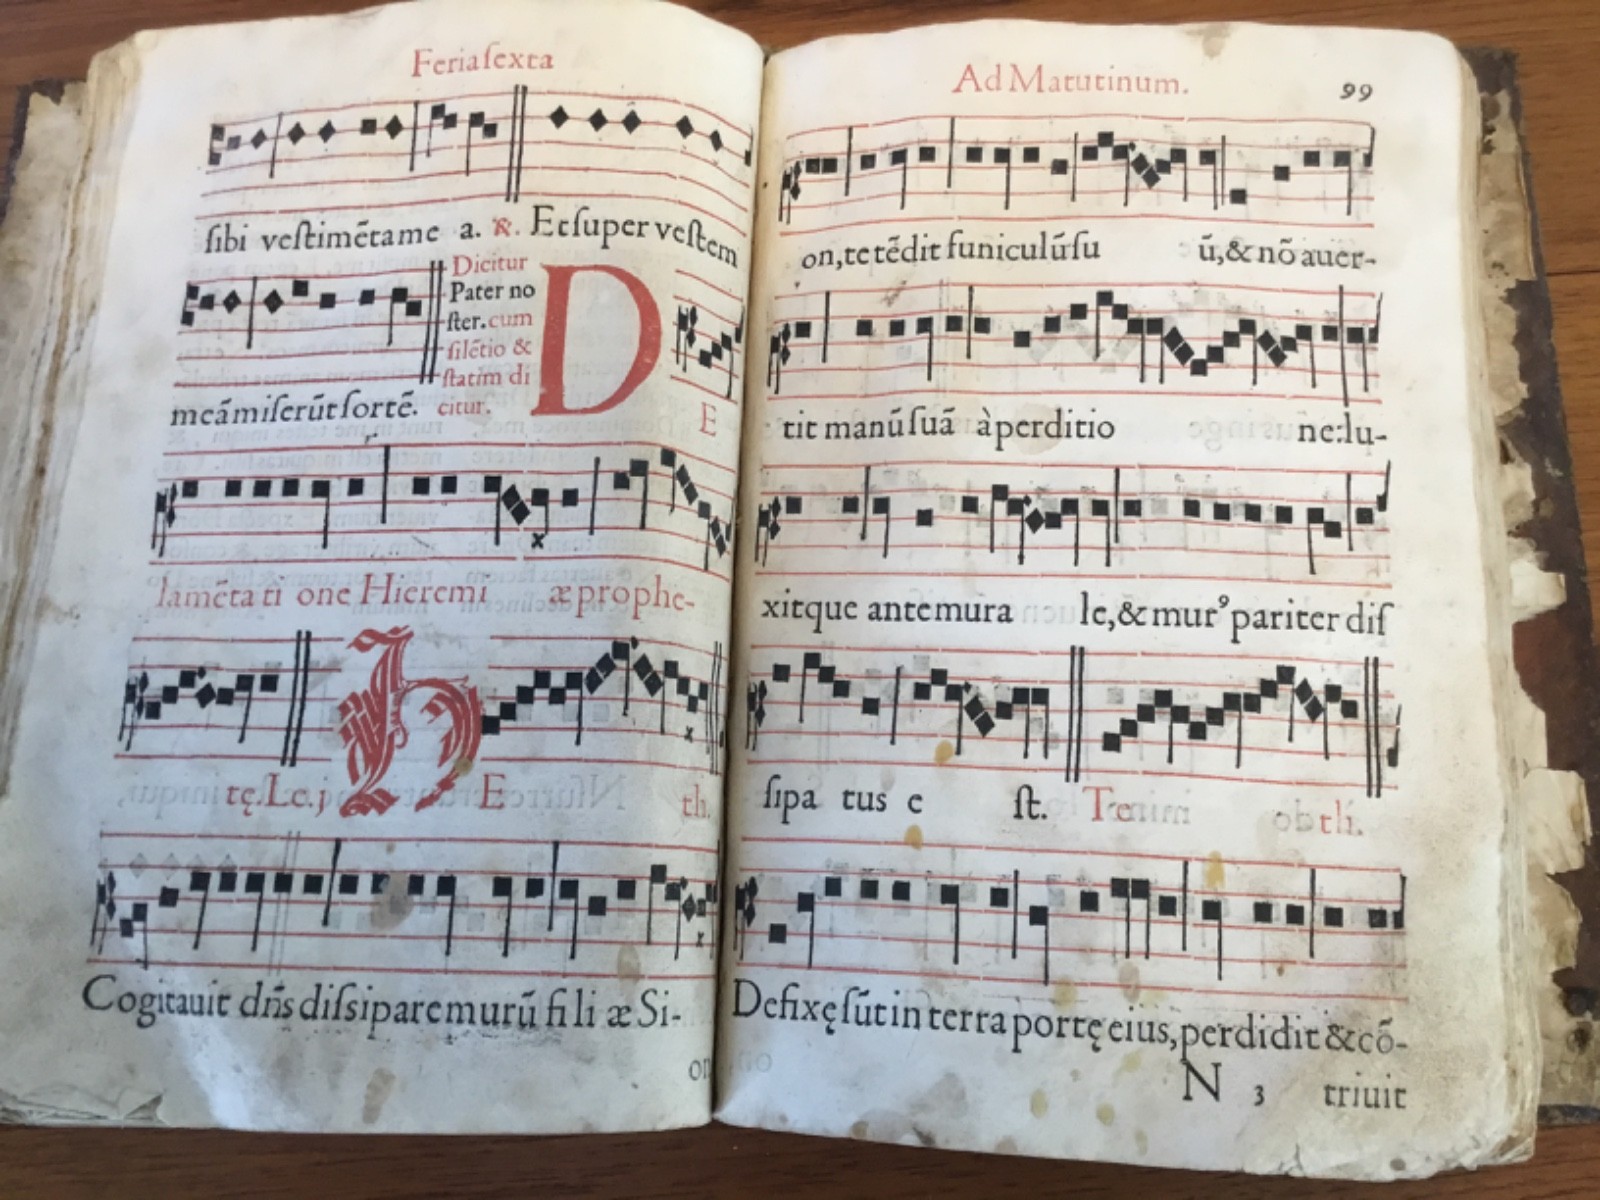 Feria ſexta
ſibi veſtimētame a. ℟. Et ſuper veſtem
Dicitur
Pater no
ſter. cum
ſilētio &
ſtatim di
citur.
meā miſerūt ſortē.
D
E
lamētati one Hieremi æ prophe-
tę. Lc. j HE th.
Cogitauit dn̄s diſsipare murū fili æ Si-
on
Ad Matutinum. 99
on, te tēdit funiculū ſu ū, & nō auer-
tit manū ſuā à perditio ne: lu-
xitque antemura le, & mur⁹ pariter diſ
ſipa tus e ſt. Te th.
Defixę ſūt in terra portę eius, perdidit & cō-
N 3 triuit